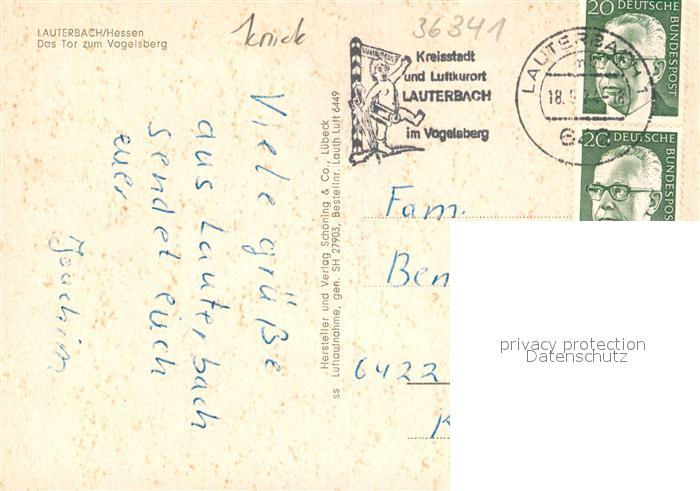 LAUTERBACH/Hessen
Das Tor zum Vogelsberg
knick
36341
Kreisstadt
und Luftkurort
LAUTERBACH
im Vogelsberg
LAUTERBACH 1
18.
18
642
20
DEUTSCHE
BUNDESPOST
20
DEUTSCHE
BUNDESPOST
Viele grüße
aus Lauterbach
sendet euch
euer
Joachim
Hersteller und Verlag Schöning & Co., Lübeck
ss Luftaufnahme, gen. SH 27903, Bestellnr. Lauth Luft 6449
Fam.
Ben
6422
privacy protection
Datenschutz